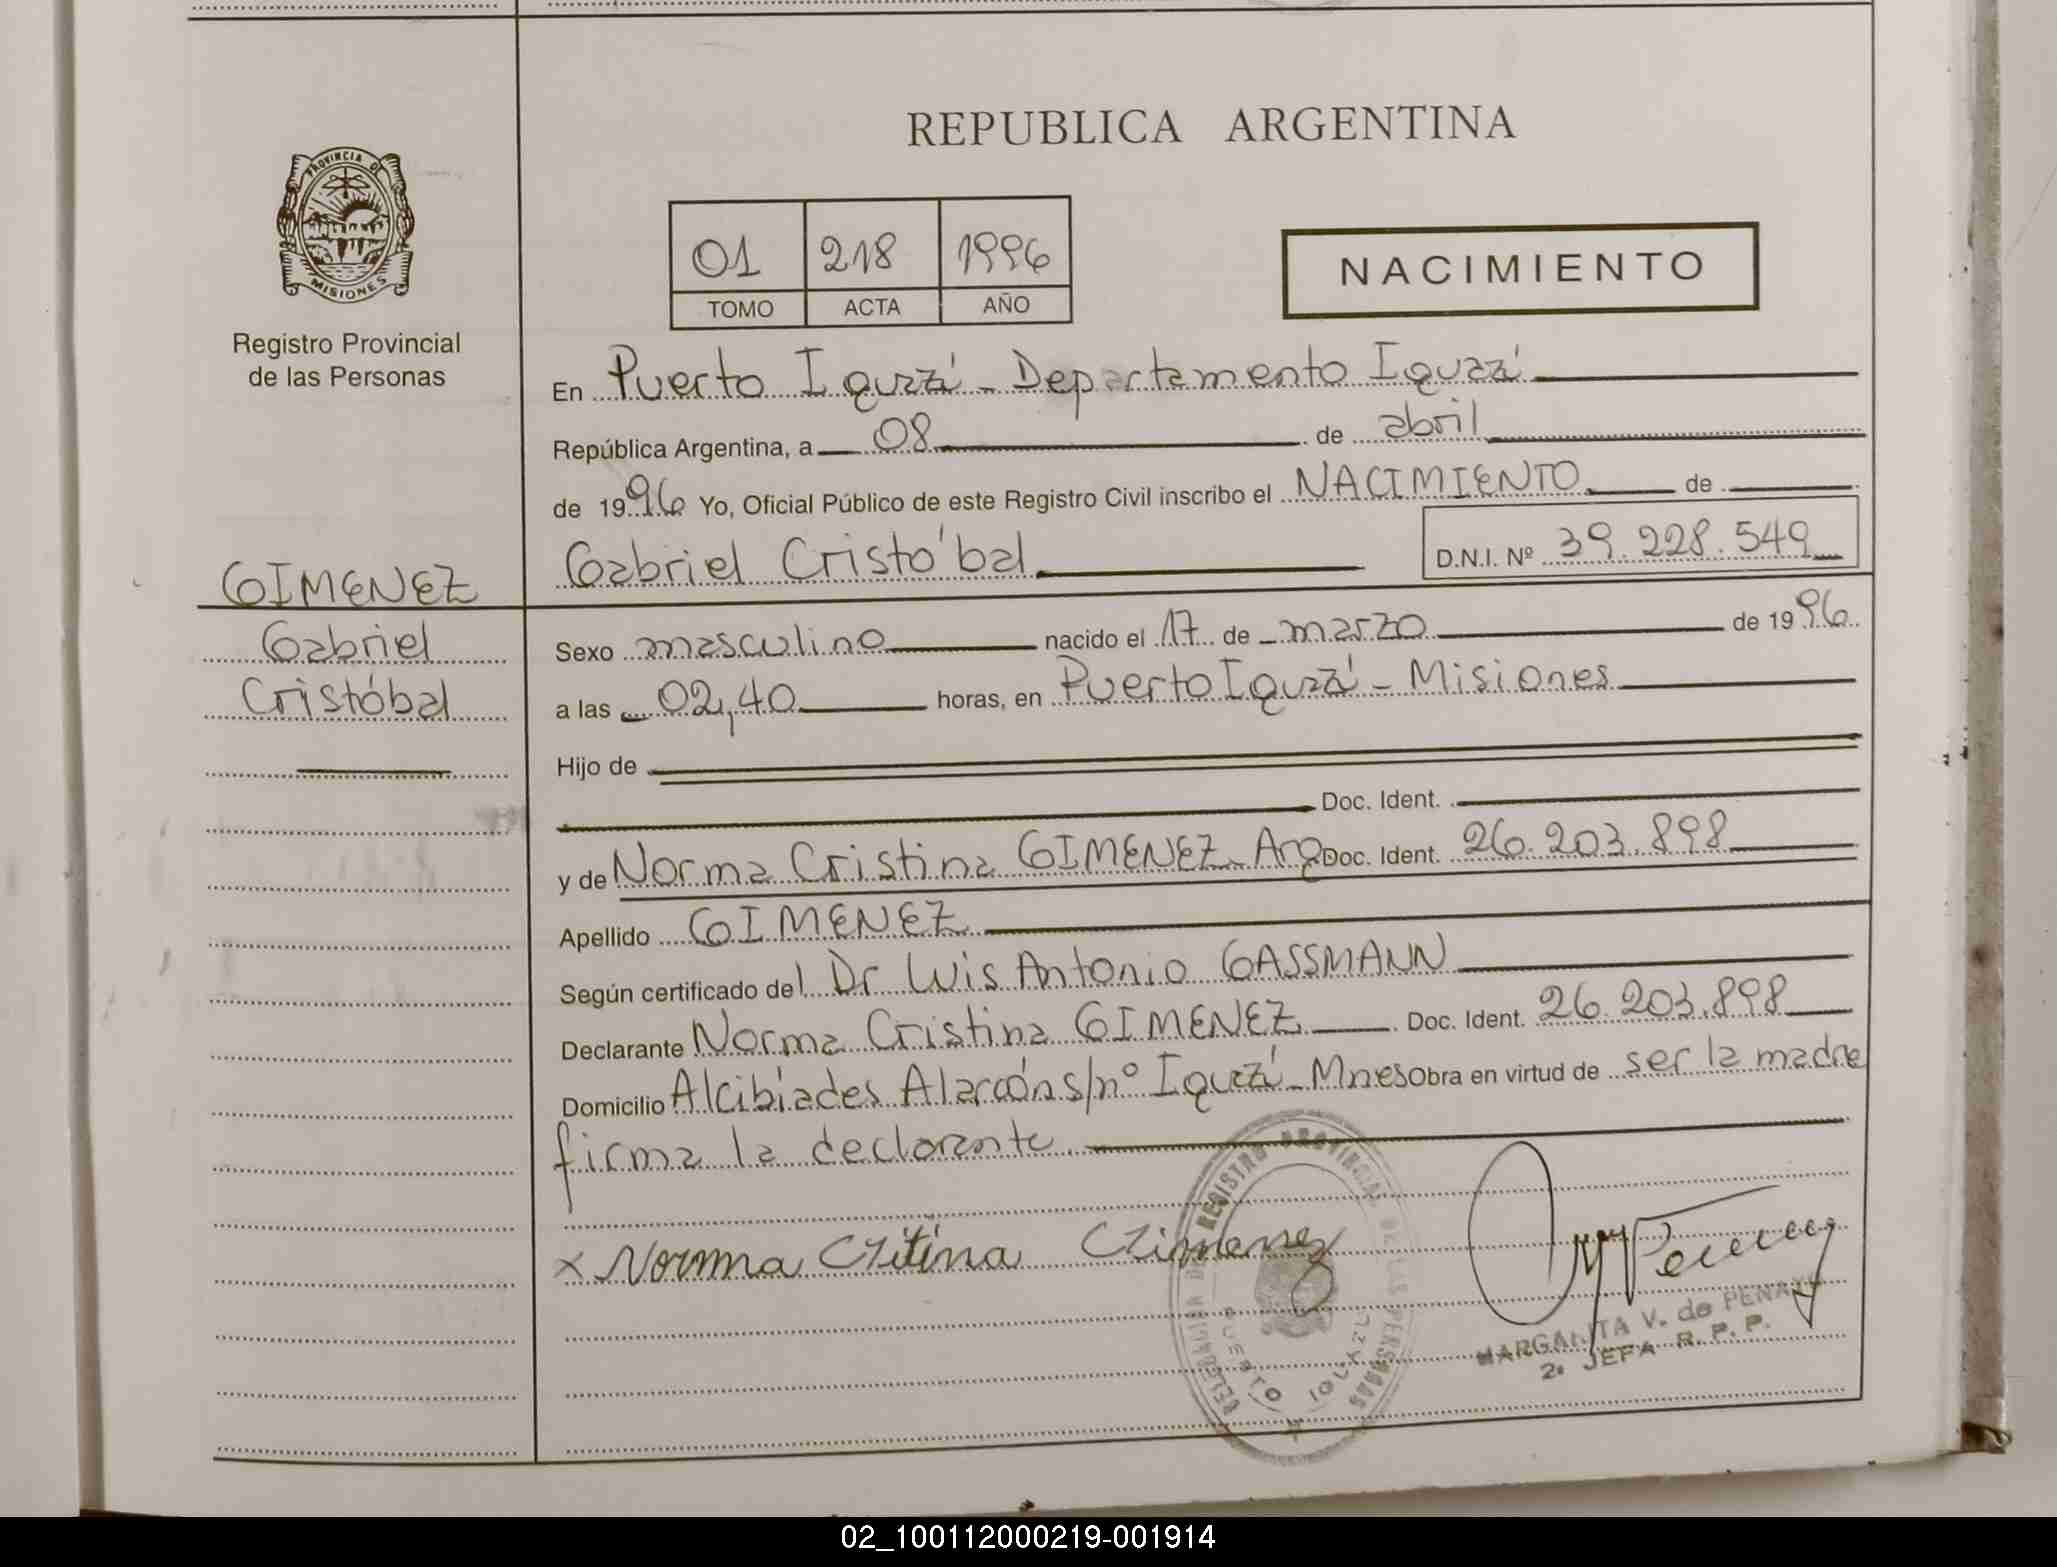 REPUBLICA ARGENTINA
PROVINCIA DE
MISIONES
Registro Provincial
de las Personas
01 218 1996
TOMO ACTA AÑO
NACIMIENTO
En Puerto Iguazú - Departamento Iguazú
República Argentina, a 08 de abril
de 1996 Yo, Oficial Público de este Registro Civil inscribo el NACIMIENTO de
Gabriel Cristóbal D.N.I. Nº 39.228.549
GIMENEZ
Gabriel
Cristóbal
Sexo masculino nacido el 17 de marzo de 1996
a las 02,40 horas, en Puerto Iguazú - Misiones
Hijo de
Doc. Ident.
y de Norma Cristina GIMENEZ - Arg Doc. Ident. 26.203.898
Apellido GIMENEZ
Según certificado del Dr Luis Antonio GASSMANN
Declarante Norma Cristina GIMENEZ Doc. Ident. 26.203.898
Domicilio Alcibíades Alarcón s/nº Iguazú - Mnes Obra en virtud de ser la madre
firma la declarante
x Norma Critina Gimenez
REGISTRO PROVINCIAL DE LAS PERSONAS
PUERTO IGUAZU
MARGARITA V. de PENAYO
2ª JEFA R. P. P.
02_100112000219-001914